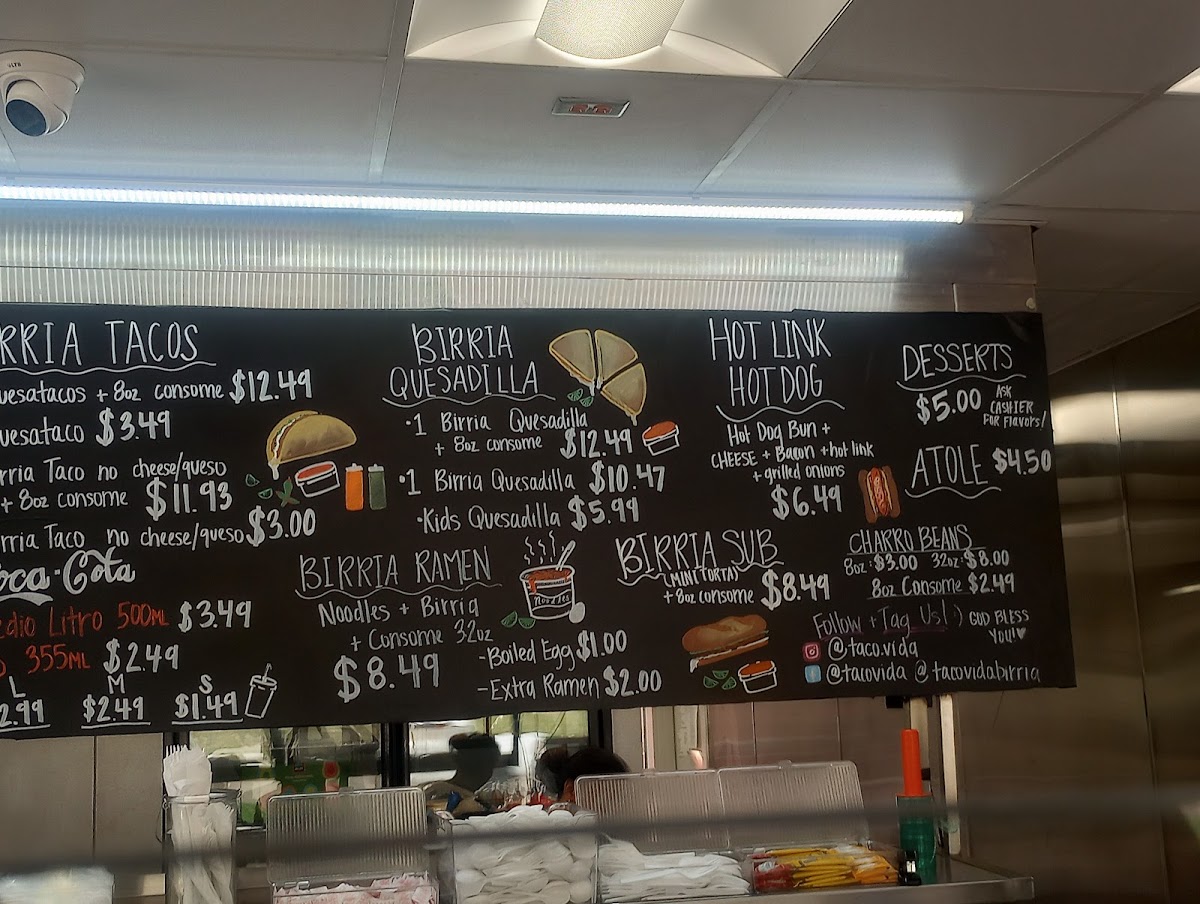 RRIA TACOS
uesatacos + 8oz consome $12.49
uesataco $3.49
rria Taco no cheese/queso
+ 8oz consome $11.93
rria Taco no cheese/queso $3.00
oca-Cola
edio Litro 500ML $3.49
355ML $2.49
L M S
2.99 $2.49 $1.49
BIRRIA
QUESADILLA
•1 Birria Quesadilla
+ 8oz consome $12.49
•1 Birria Quesadilla $10.47
•Kids Quesadilla $5.99
BIRRIA RAMEN
Noodles + Birria
+ Consome 32oz
$8.49
Noodles
-Boiled Egg $1.00
-Extra Ramen $2.00
HOT LINK
HOT DOG
Hot Dog Bun +
CHEESE + Bacon + hot link
+ grilled onions
$6.49
BIRRIA SUB
(MINI TORTA)
+ 8oz consome $8.49
DESSERTS
$5.00 ASK
CASHIER
FOR Flavors!
ATOLE $4.50
CHARRO BEANS
8oz: $3.00 32oz: $8.00
8oz Consome $2.49
Follow + Tag Us! :) GOD BLESS
YOU!
@taco.vida
@tacovida @tacovidabirria